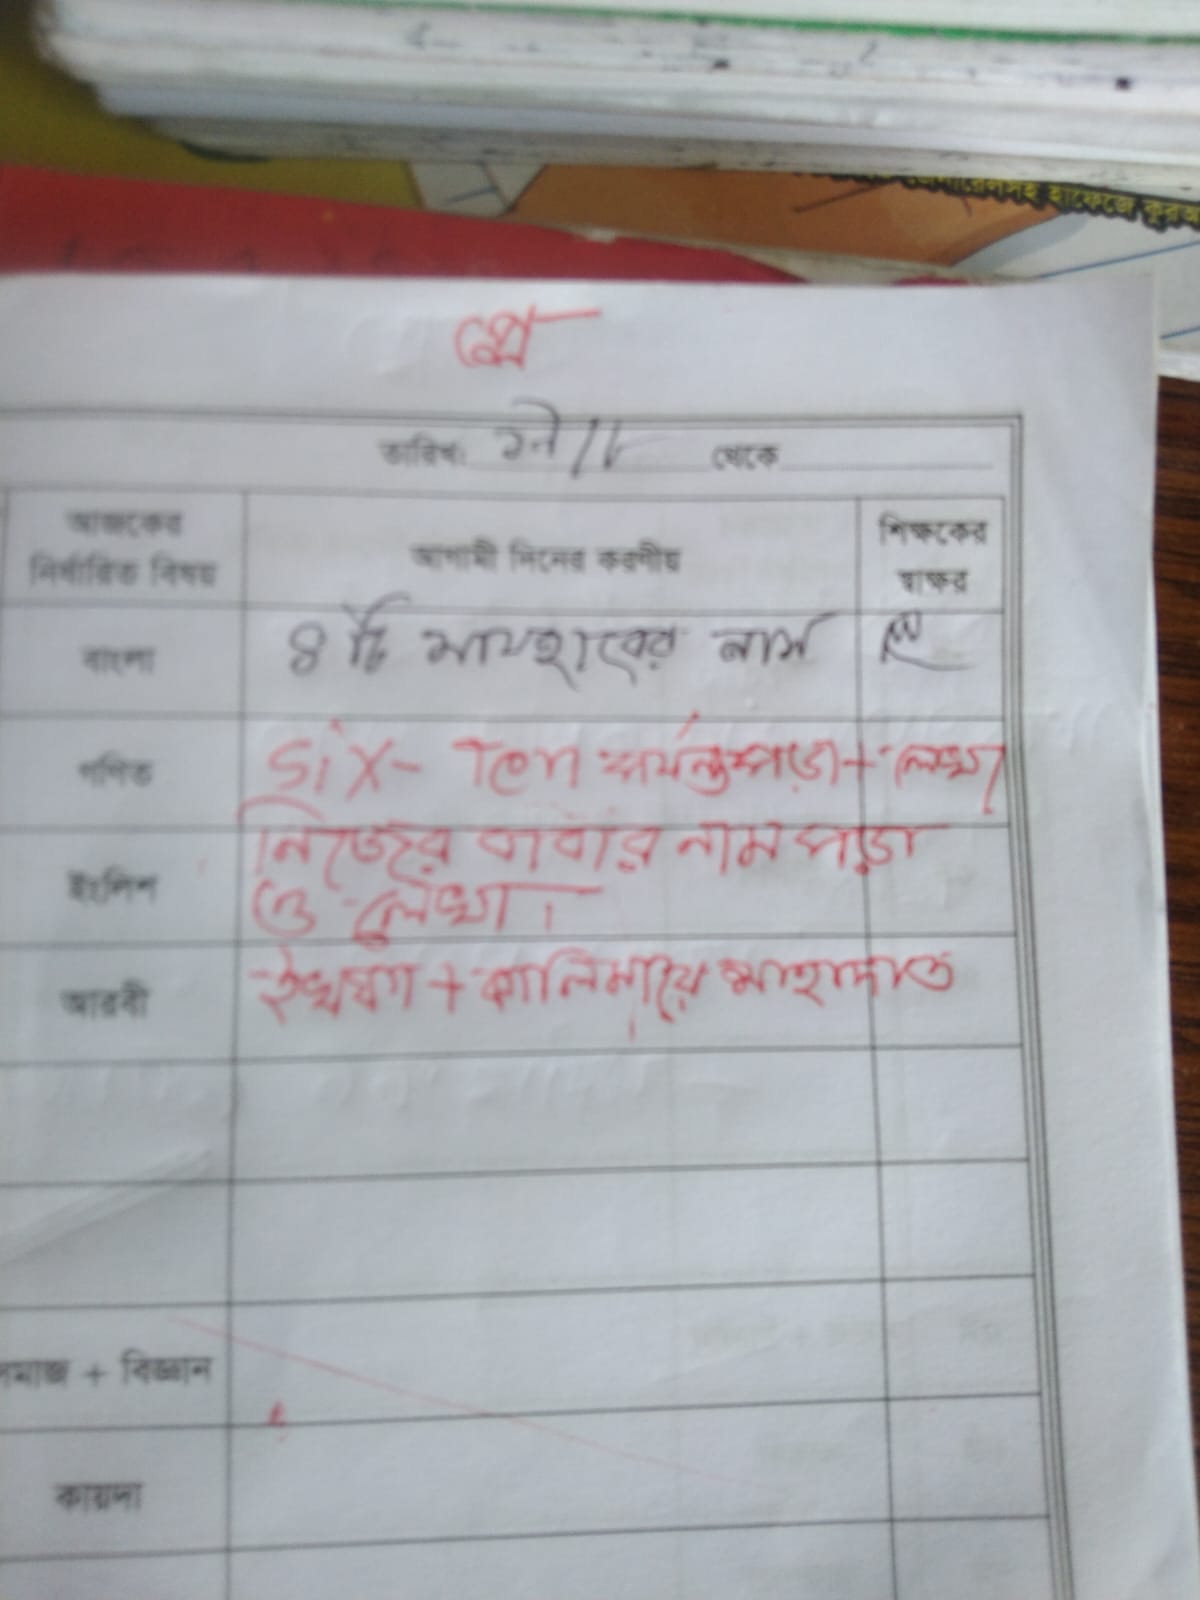 হাফেজে কুরআ
প্লে
তারিখ: থেকে
আজকের নির্ধারিত বিষয় আগামী দিনের করণীয় শিক্ষকের স্বাক্ষর
বাংলা ৪ টি মাযহাবের নাম
গণিত Six - Ten পর্যন্ত পড়া + লেখা
ইংলিশ নিজের বাবার নাম পড়া
ও লেখা।
আরবী + কালিমায়ে শাহাদাত
সমাজ + বিজ্ঞান
কায়দা